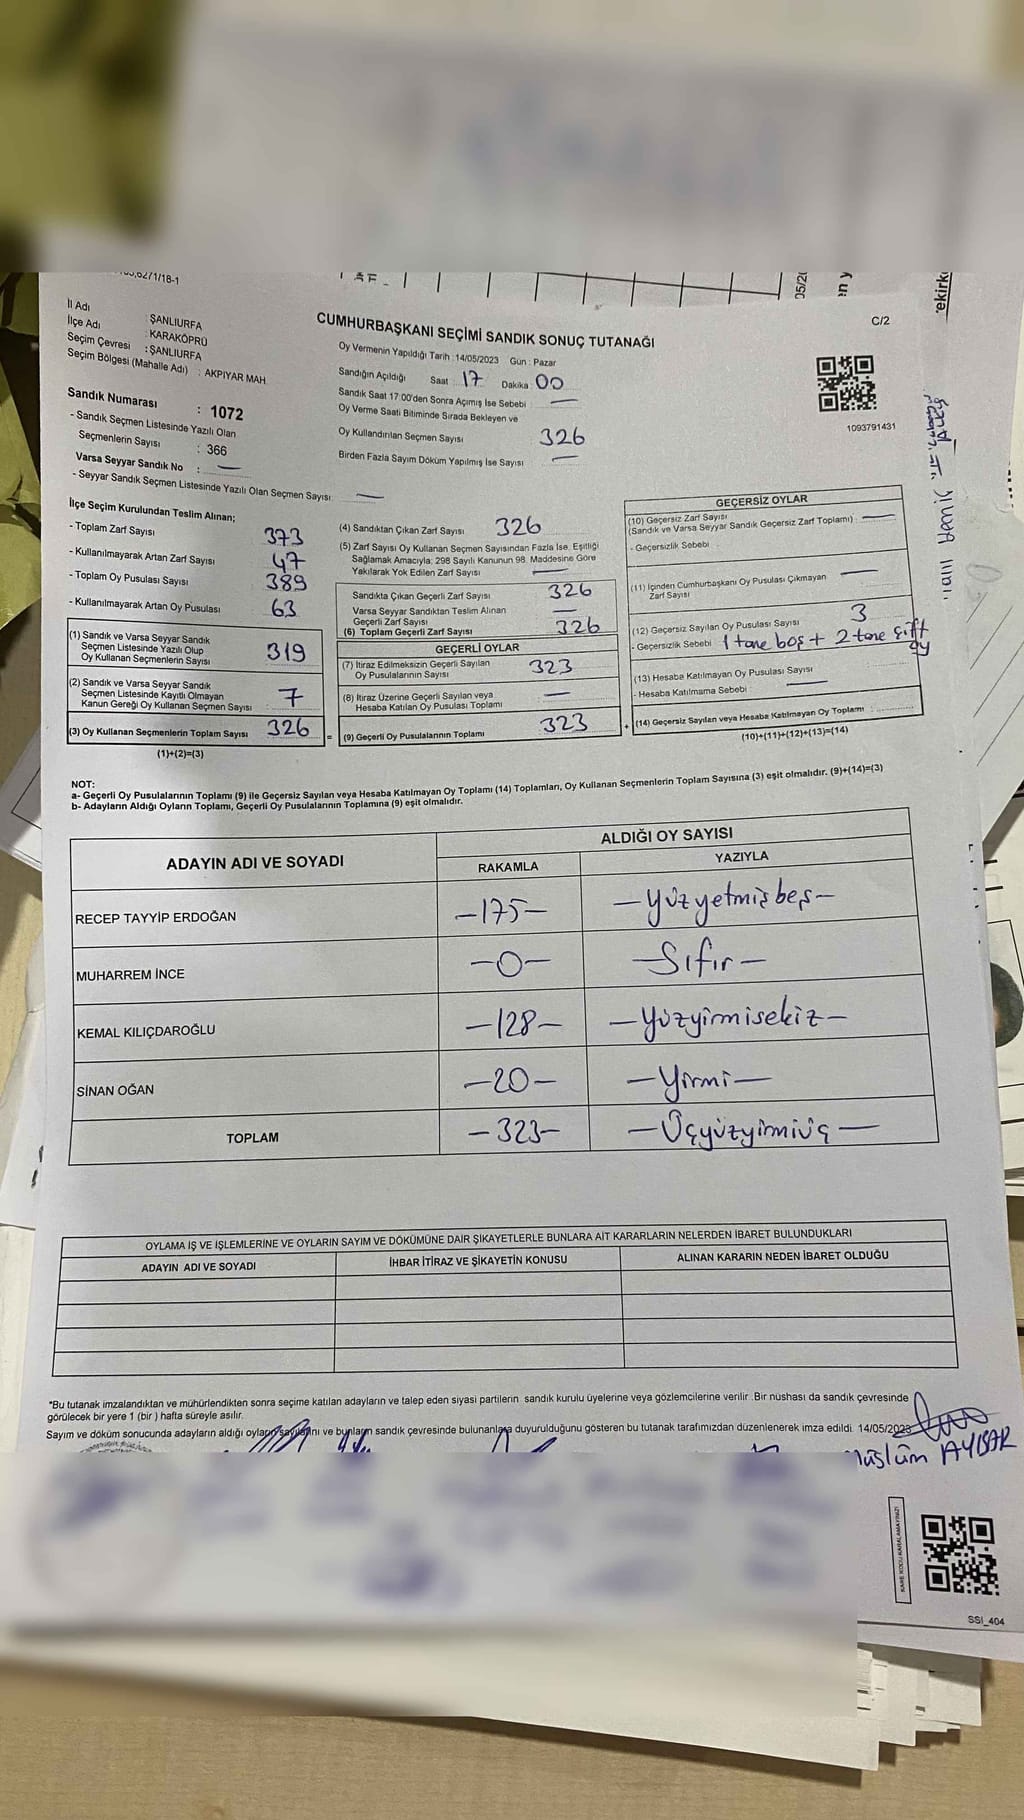 C/2
İl Adı : ŞANLIURFA
İlçe Adı : KARAKÖPRÜ
Seçim Çevresi : ŞANLIURFA
Seçim Bölgesi (Mahalle Adı) : AKPIYAR MAH
Sandık Numarası : 1072
- Sandık Seçmen Listesinde Yazılı Olan
Seçmenlerin Sayısı : 366
Varsa Seyyar Sandık No : —
- Seyyar Sandık Seçmen Listesinde Yazılı Olan Seçmen Sayısı: —
CUMHURBAŞKANI SEÇİMİ SANDIK SONUÇ TUTANAĞI
Oy Vermenin Yapıldığı Tarih :14/05/2023 Gün : Pazar
Sandığın Açıldığı Saat : 17 Dakika : 00
Sandık Saat 17:00'den Sonra Açımış İse Sebebi : —
Oy Verme Saati Bitiminde Sırada Bekleyen ve
Oy Kullandırılan Seçmen Sayısı 326
Birden Fazla Sayım Döküm Yapılmış İse Sayısı —
1093791431
İlçe Seçim Kurulundan Teslim Alınan;
- Toplam Zarf Sayısı 373
- Kullanılmayarak Artan Zarf Sayısı 47
- Toplam Oy Pusulası Sayısı 389
- Kullanılmayarak Artan Oy Pusulası 63
(1) Sandık ve Varsa Seyyar Sandık
Seçmen Listesinde Yazılı Olup
Oy Kullanan Seçmenlerin Sayısı 319
(2) Sandık ve Varsa Seyyar Sandık
Seçmen Listesinde Kayıtlı Olmayan
Kanun Gereği Oy Kullanan Seçmen Sayısı 7
(3) Oy Kullanan Seçmenlerin Toplam Sayısı 326
(1)+(2)=(3)
(4) Sandıktan Çıkan Zarf Sayısı 326
(5) Zarf Sayısı Oy Kullanan Seçmen Sayısından Fazla İse, Eşitliği
Sağlamak Amacıyla; 298 Sayılı Kanunun 98. Maddesine Göre
Yakılarak Yok Edilen Zarf Sayısı —
Sandıkta Çıkan Geçerli Zarf Sayısı 326
Varsa Seyyar Sandıktan Teslim Alınan
Geçerli Zarf Sayısı —
(6) Toplam Geçerli Zarf Sayısı 326
GEÇERLİ OYLAR
(7) İtiraz Edilmeksizin Geçerli Sayılan
Oy Pusulalarının Sayısı 323
(8) İtiraz Üzerine Geçerli Sayılan veya
Hesaba Katılan Oy Pusulası Toplamı —
= (9) Geçerli Oy Pusulalarının Toplamı 323
GEÇERSİZ OYLAR
(10) Geçersiz Zarf Sayısı
(Sandık ve Varsa Seyyar Sandık Geçersiz Zarf Toplamı) : —
- Geçersizlik Sebebi :
(11) İçinden Cumhurbaşkanı Oy Pusulası Çıkmayan
Zarf Sayısı —
(12) Geçersiz Sayılan Oy Pusulası Sayısı 3
- Geçersizlik Sebebi 1 tane boş + 2 tane çift
oy
(13) Hesaba Katılmayan Oy Pusulası Sayısı —
- Hesaba Katılmama Sebebi :
+ (14) Geçersiz Sayılan veya Hesaba Katılmayan Oy Toplamı :
(10)+(11)+(12)+(13)=(14)
NOT:
a- Geçerli Oy Pusulalarının Toplamı (9) ile Geçersiz Sayılan veya Hesaba Katılmayan Oy Toplamı (14) Toplamları, Oy Kullanan Seçmenlerin Toplam Sayısına (3) eşit olmalıdır. (9)+(14)=(3)
b- Adayların Aldığı Oyların Toplamı, Geçerli Oy Pusulalarının Toplamına (9) eşit olmalıdır.
ADAYIN ADI VE SOYADI ALDIĞI OY SAYISI
RAKAMLA YAZIYLA
RECEP TAYYİP ERDOĞAN —175— —Yüzyetmişbeş—
MUHARREM İNCE —0— —Sıfır—
KEMAL KILIÇDAROĞLU —128— —Yüzyirmisekiz—
SİNAN OĞAN —20— —Yirmi—
TOPLAM —323— —Üçyüzyirmiüç—
OYLAMA İŞ VE İŞLEMLERİNE VE OYLARIN SAYIM VE DÖKÜMÜNE DAİR ŞİKAYETLERLE BUNLARA AİT KARARLARIN NELERDEN İBARET BULUNDUKLARI
ADAYIN ADI VE SOYADI İHBAR İTİRAZ VE ŞİKAYETİN KONUSU ALINAN KARARIN NEDEN İBARET OLDUĞU
*Bu tutanak imzalandıktan ve mühürlendikten sonra seçime katılan adayların ve talep eden siyasi partilerin sandık kurulu üyelerine veya gözlemcilerine verilir .Bir nüshası da sandık çevresinde
görülecek bir yere 1 (bir ) hafta süreyle asılır.
Sayım ve döküm sonucunda adayların aldığı oyların sayılarını ve bunların sandık çevresinde bulunanlara duyurulduğunu gösteren bu tutanak tarafımızdan düzenlenerek imza edildi. 14/05/2023
KARE KODU KARALAMAYINIZ!
SSI_404